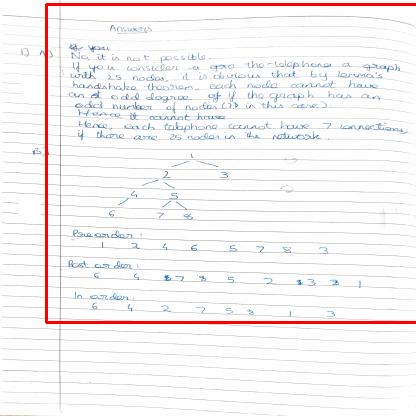 Answers
1) A) If you
No, it is not possible.
If you consider a gra the telephone a graph
with 25 nodes, it is obvious that by lemma's
handshake theorem, each node cannot have
an odd degree if the graph has an
odd number of nodes (25 in this case)
Hence it cannot have
Hence, each telephone cannot have 7 connections,
if there are 25 nodes in the network.
B)
1
2 3
4 5
6 7 8
Preorder:
1 2 4 6 5 7 8 3
Post order:
6 4 7 8 5 2 3 1
In order:
6 4 2 7 5 8 1 3